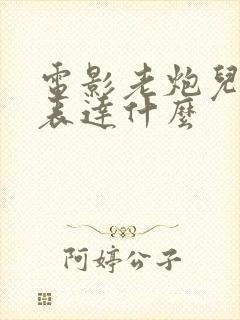 電影老炮兒
表達什麼
阿婷公子